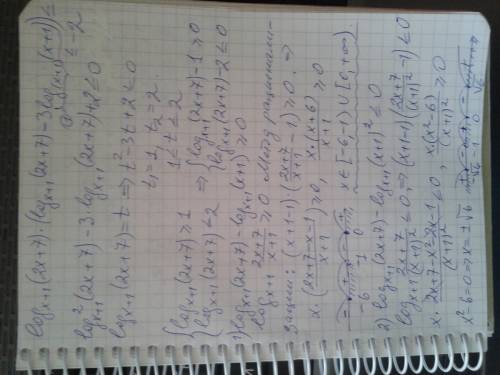 log_{x+1}(2x+7)·(log_{x+1}(2x+7)-3log_{x+1}(x+1))≤
≤-2
log²_{x+1}(2x+7)-3·log_{x+1}(2x+7)+2≤0
log_{x+1}(2x+7)=t ⇒ t²-3t+2≤0
t₁=1, t₂=2.
1≤t≤2
{log_{x+1}(2x+7)≥1
{log_{x+1}(2x+7)≤2
⇒ {log_{x+1}(2x+7)-1≥0
{log_{x+1}(2x+7)-2≤0
1) log_{x+1}(2x+7)-log_{x+1}(x+1)≥0
log_{x+1} (2x+7)/(x+1) ≥0 Метод рационали-
зации: (x+1-1)((2x+7)/(x+1) -1)≥0. ⇒
x·((2x+7-x-1)/(x+1))≥0, x·(x+6)/(x+1) ≥0
-6 -1 0
x∈[-6;-1)∪[0,+∞)
2) log_{x+1}(2x+7)-log_{x+1}(x+1)²≤0
log_{x+1} (2x+7)/(x+1)² ≤0, ⇒ (x+1-1)((2x+7)/(x+1)² -1)≤0
x· (2x+7-x²-2x-1)/(x+1)² ≤0, x(x²-6)/(x+1)² ≥0
x²-6=0 ⇒ x=±√6
-√6 -1 0 √6